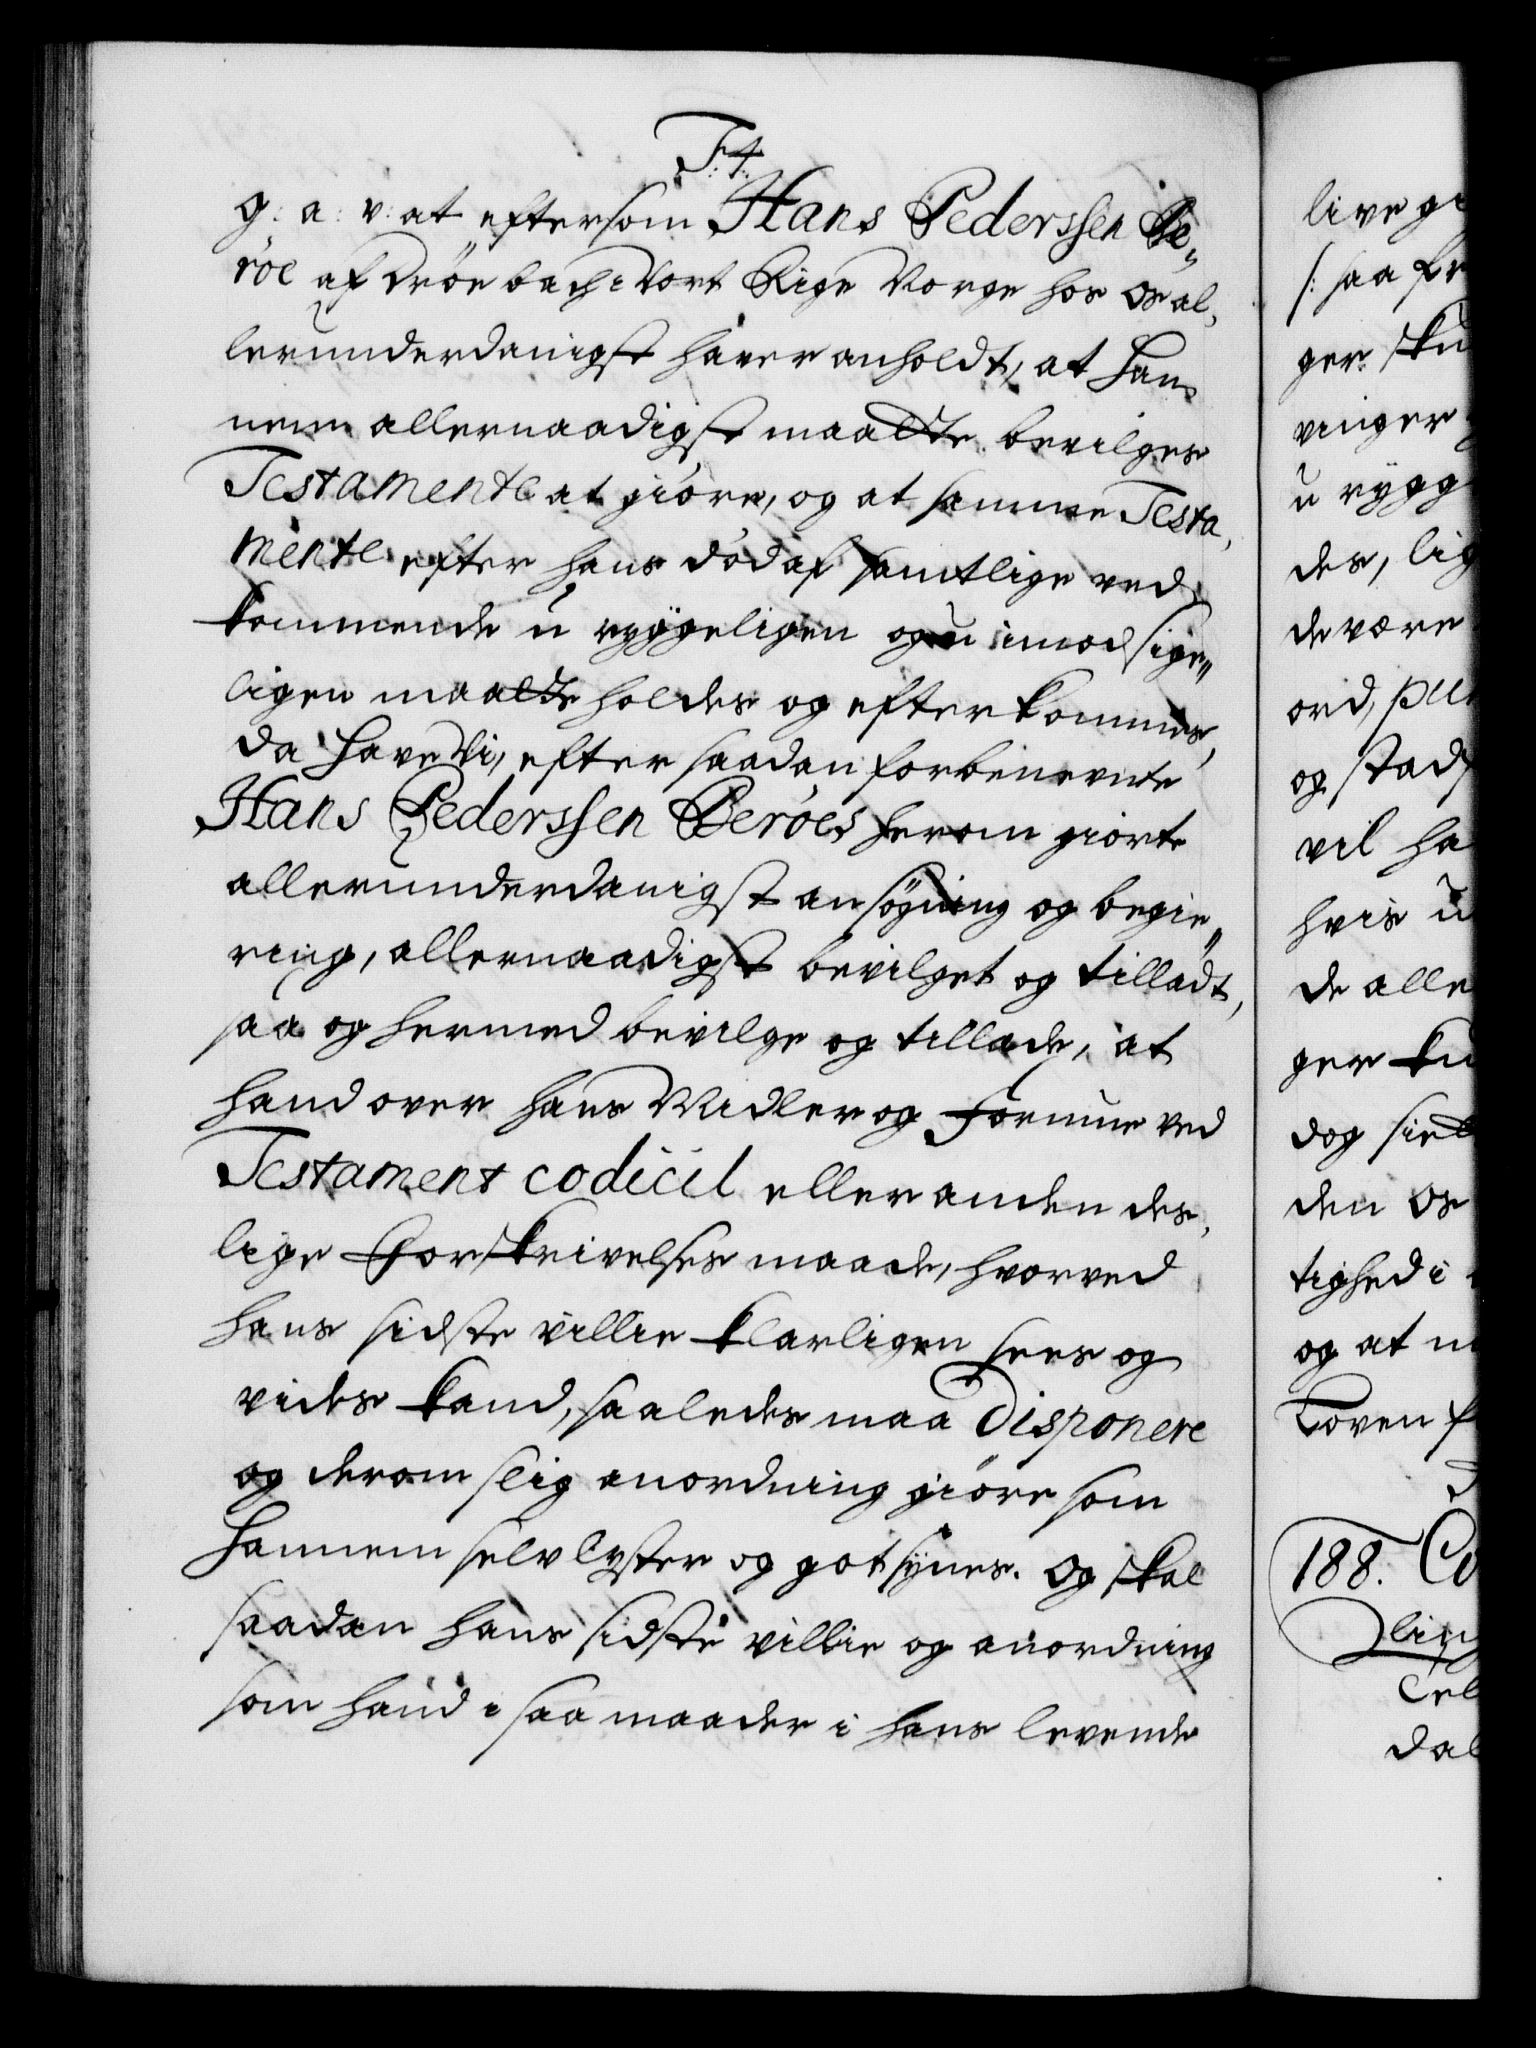 F: 4.
g: a: v: at eftersom Hans Pederssen Be„
röe af Dröebach i Vort Rige Norge hos Os al,
lerunderdanigst haver anholdt, at han,
nem allernaadigst maatte bevilges
Testamente at giöre, og at samme Testa,
mente efter hans död af samtlige ved
kommende u ryggeligen og u imodsige„
ligen maatte holdes og efterkommes,
da have Vi, efter saadan forbenevnte
Hans Pederssen Beröes herom giorte
allerunderdanigst ansögning og begie„
ring, allernaadigst bevilget og tilladt,
saa og hermed bevilge og tillade, at
hand over hans Midler og Formue ved
Testament codicil eller anden des,
lige Forskrivelses maade, hvorved
hans sidste villie klarligen sees og
vides kand, saaledes maa Disponere
og derom slig anordning giöre som
hannem selv lyster og got synes. Og skal
saadan hans sidste villie og anordning
som hand i saa maader i hans levende
live gi
/: saa fr
ger sku
vinger
u rygg
des, lig
de være
ord, pun
og stads
vil ha
hvis u
de alle
ger ku
dog siel
den Os
tighed i
og at n
Loven f
D
188. Co
ling
Cel
dal